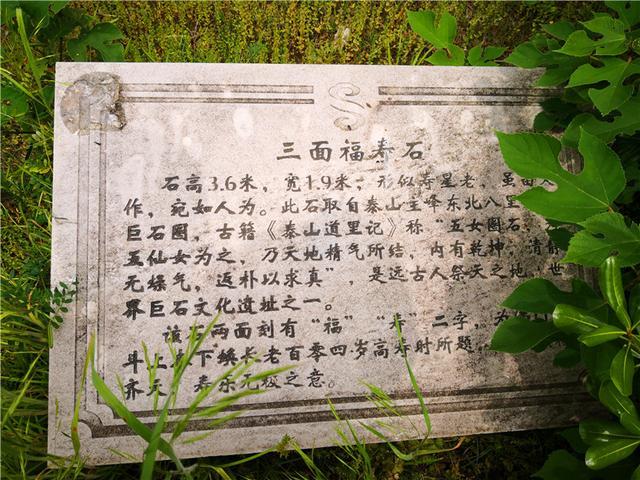 三面福寿石
石高3.6米，宽1.9米；形似寿星老，虽
作，宛如人为。此石取自泰山主峰东北八里
巨石图，古籍《泰山道里记》称“五女圈石，
五仙女为之，乃天地精气所结，内有乾抻，清静
无燥气，返朴以求真”，是远古人祭天之地，世
界巨石文化遗址之一。
该石两面刻有“福”“寿”二字，为
斗上 下 长老百零四岁高寿时所题，
齐天 寿东无极之意。